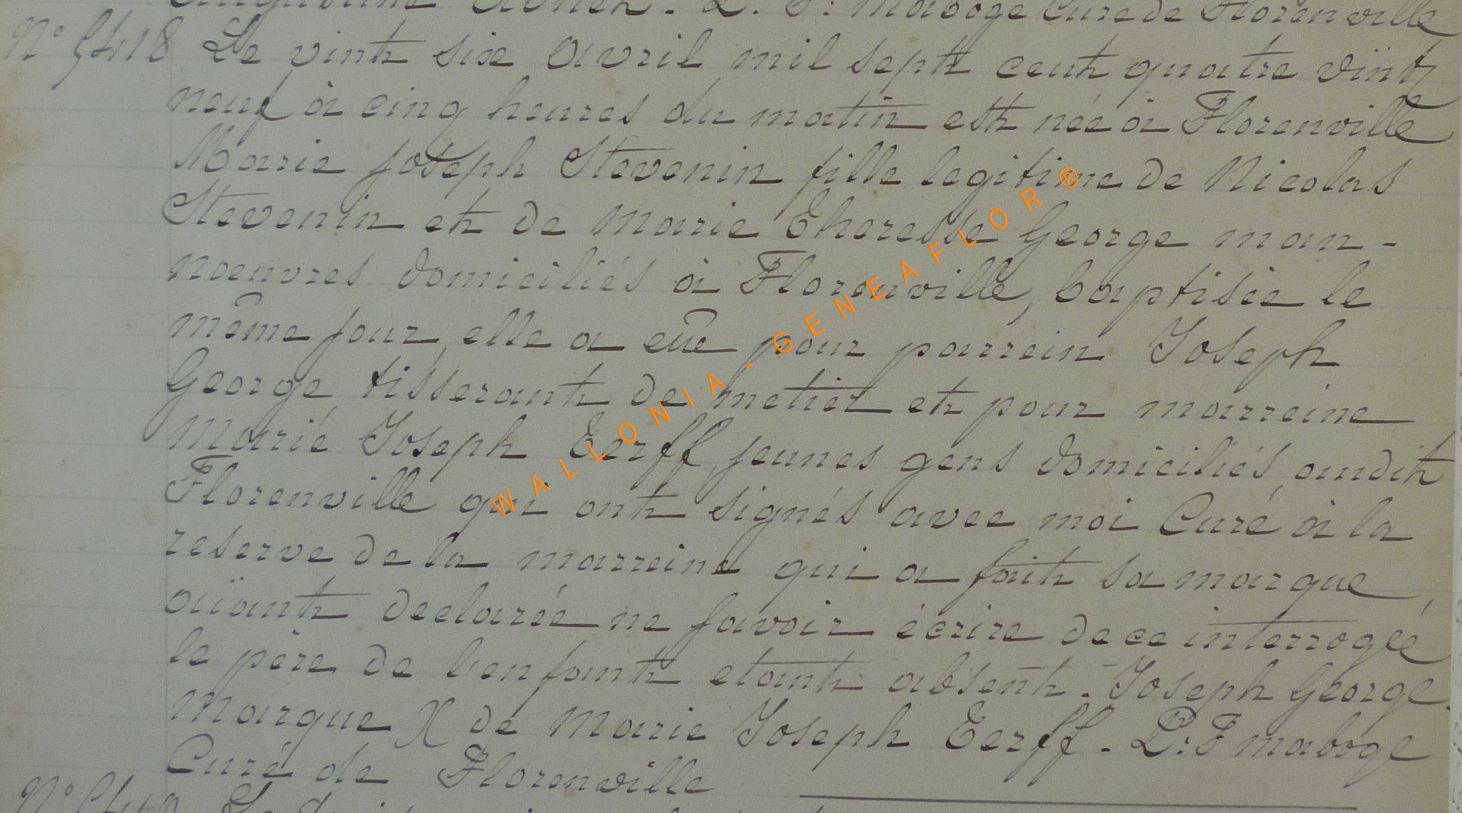 L. F: maboge Curé de Florenville
N° 5418 Le vint six Avril mil sept cent quatre vint
neuf à cinq heures du matin est née à Florenville
Marie Joseph Stevenin fille legitime de Nicolas
Stevenin et de Marie Theresse George man-
noeuvres domiciliés à Florenville, baptisée le
même jour, elle a eûe pour parrein Joseph
George tisserant de metier et pour marreine
Marié Joseph Eerff, jeunes gens domiciliés audit
Florenville qui ont signés avec moi Curé à la
reserve de la marreine qui a fait sa marque
aïiant declarée ne savoir écrire de ce interrogée
le père de l'enfant etant absent. Joseph George.
Marque X de Marie Joseph Eerff. P: F maboge
Curé de Florenville
WALLONIA - GENEAFLOR ®
N°